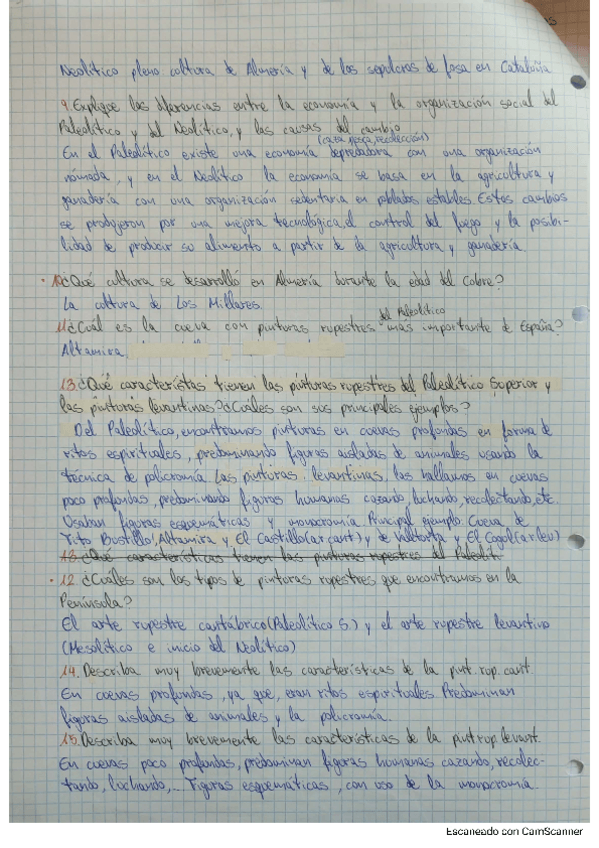 Neolítico pleno cultura de Almería y de los sepulcros de fosa en Cataluña
9. Explique las diferencias entre la economía y la organización social del
Paleolítico y del Neolítico, y las causas del cambio
(caza, pesca, recolección)
En el Paleolítico existe una economía depredadora con una organización
nómada, y en el Neolítico la economía se basa en la agricultura y
ganadería con una organización sedentaria en poblados estables. Estos cambios
se produjeron por una mejora tecnológica, el control del fuego y la posibi-
lidad de producir su alimento a partir de la agricultura y ganadería
10 ¿Qué cultura se desarrolló en Almería durante la edad del Cobre?
La cultura de Los Millares.
del Paleolítico
11 ¿Cuál es la cueva con pinturas rupestres más importante de España?
Altamira.
13 ¿Qué característas tienen las pinturas rupestres del Paleolítico Superior y
las pinturas levantinas? ¿Cuáles son sus principales ejemplos?
Del Paleolítico, encontramos pinturas en cuevas profundas en forma de
ritos espirituales, predominando figuras aisladas de animales usando la
técnica de policromía. Las pinturas levantinas, las hallamos en cuevas
poco profundas, predominando figuras humanas cazando, luchando, recolectando, etc.
Usaban figuras esquemáticas y monocromía. Principal ejemplo: Cueva de
Tito Bustillo, Altamira y El Castillo (ar.cant) y de Valltorta y El Cogul (ar.lev)
13. ¿Qué características tienen las pinturas rupestres del Paleolít.
12 ¿Cuáles son los tipos de pinturas rupestres que encontramos en la
Península?
El arte rupestre cantábrico (Paleolítico S.) y el arte rupestre levantino
(Mesolítico e inicio del Neolítico)
14. Describa muy brevemente las características de la pint. rup. cant.
En cuevas profundas, ya que, eran ritos espirituales. Predominan
figuras aisladas de animales y la policromía.
15. Describa muy brevemente las características de la pint rup. levant.
En cuevas poco profundas, predominan figuras humanas cazando, recolec-
tando, luchando,... Figuras esquemáticas, con uso de la monocromía.
Escaneado con CamScanner